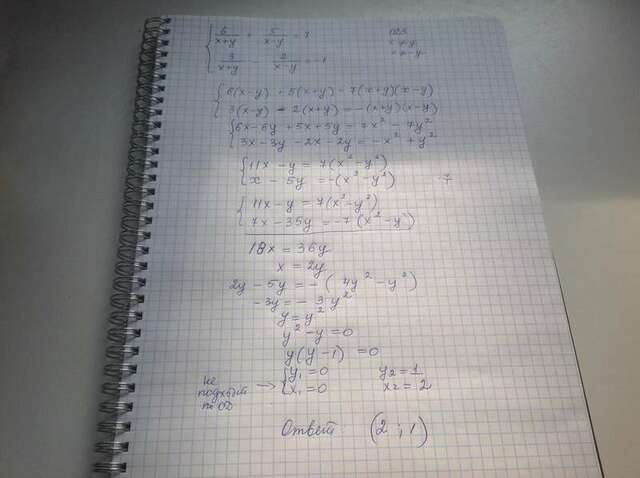 6/(x+y) + 5/(x-y) = 7
3/(x+y) - 2/(x-y) = -1
ОДЗ
6(x-y) + 5(x+y) = 7(x+y)(x-y)
3(x-y) - 2(x+y) = -(x+y)(x-y)
6x-6y + 5x+5y = 7x² - 7y²
3x-3y - 2x-2y = -x² + y²
11x - y = 7(x² - y²)
x - 5y = -(x² - y²) ·7
11x - y = 7(x² - y²)
7x - 35y = -7(x² - y²)
18x = 36y
x = 2y
2y - 5y = -(4y² - y²)
-3y = -3y²
y = y²
y² - y = 0
y(y-1) = 0
y₁ = 0 y₂ = 1
не подходит по → x₁ = 0 x₂ = 2
Ответ (2 ; 1)